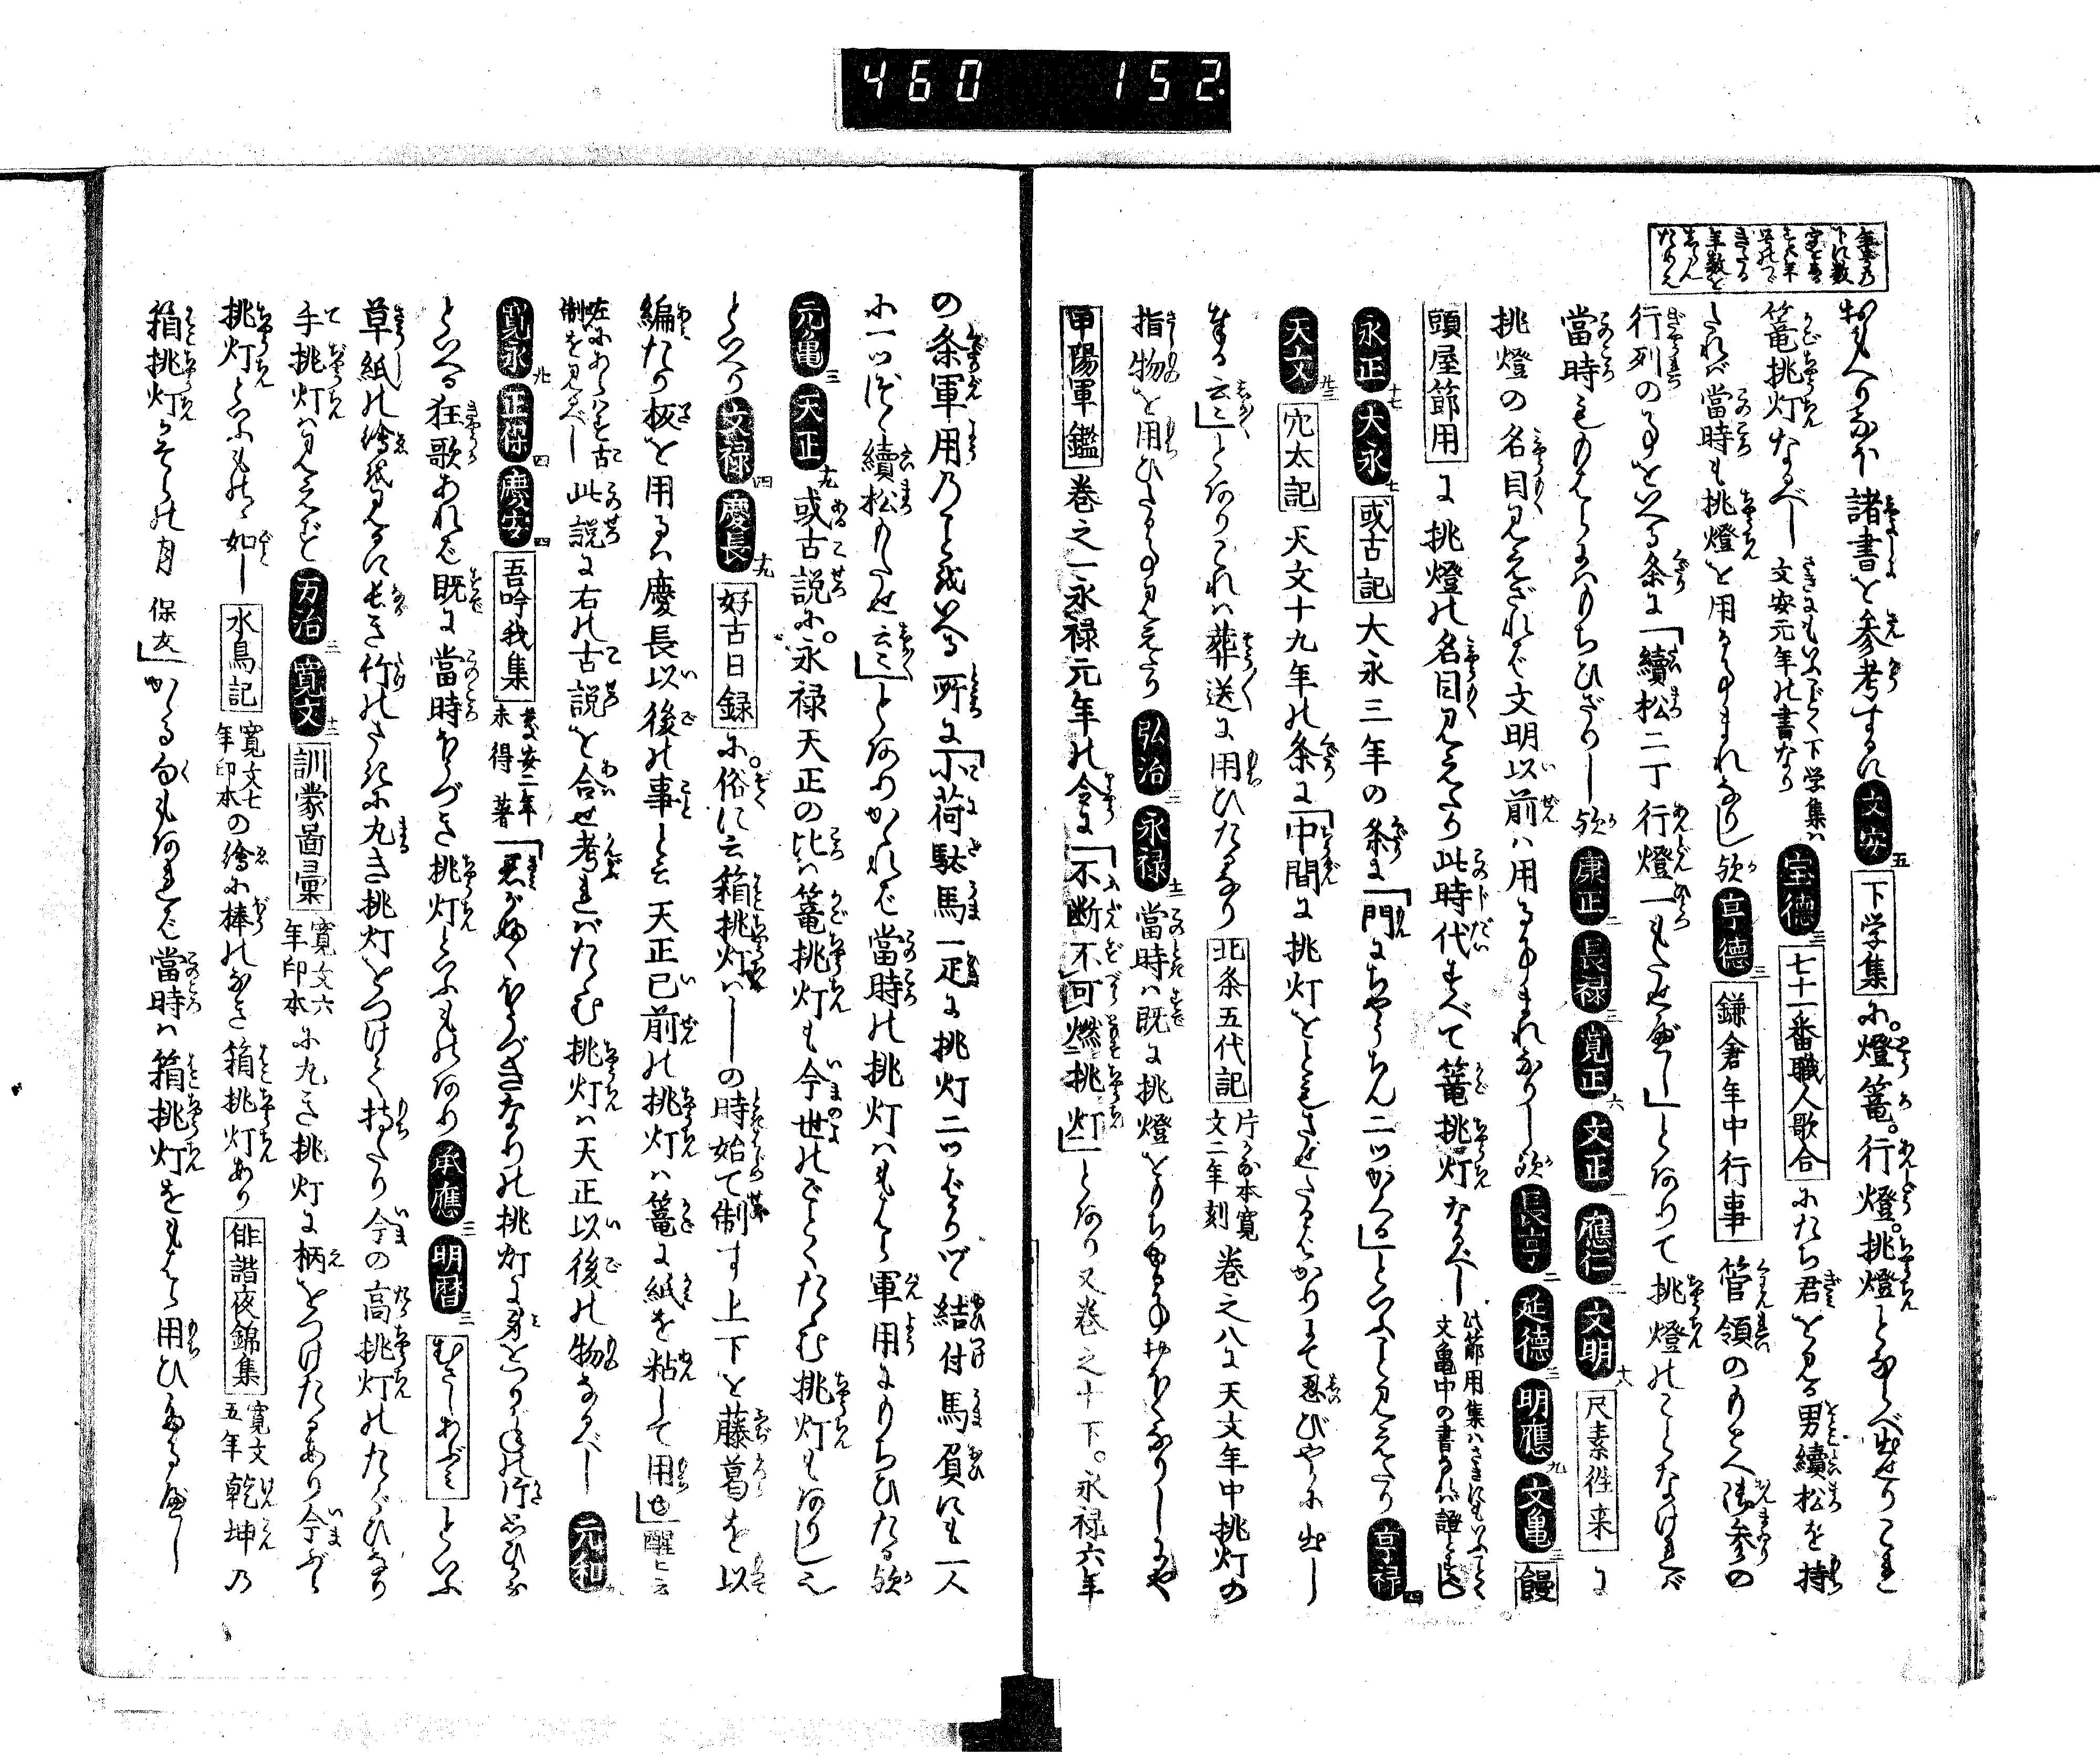 460 152.
年号乃
下に数
字をしるすは年
号のつゞ
きたる
年数を
しらん
ためなり
おもへりなほ諸書を参考するに文安五下学集に。燈篭。行燈。挑燈とならべ出せりこれ
篭挑灯なるべし さきにもいふごとく下学集は文安元年の書なり 宝徳三七十一番職人歌合にたち君を見る男續松を持
たれば當時も挑燈を用る事まれなりし歟享徳三鎌倉年中行事管領のもとへ御参の
行列の事をいへる条に「續松二丁行燈一もたせべし」とありて挑燈のことなければ
當時もつはらにはもちひざりし歟康正二長禄三寛正六文正一應仁二文明十八尺素徃来に
挑燈の名目見えざれば文明以前は用る事まれなりし歟長享二延徳三明應九文亀三饅
頭屋節用に挑燈の名目見えたり此時代すべて篭挑灯なるべし 此節用集はさきにもいふごとく文亀中の書なれば證とすべし
永正十七大永七或古記大永三年の条に「門にちやうちん二ツかくる」といふこと見えたり享禄四
天文廿三穴太記天文十九年の条に「中間に挑灯をともさせたるばかりにて忍びやかに出し
奉る云々」とありこれは葬送に用ひたるなり北条五代記 片かな本寛文二年刻 巻之八に天文年中挑灯の
指物を用ひたる事見えたり弘治三永禄十二當時は既に挑燈をもちゆる事おほくなりしにや
甲陽軍鑑巻之一永禄元年の令に「不断不可燃挑灯」とあり又巻之十下。永禄六年
の条軍用乃ことを記る所に「小荷駄馬一疋に挑灯二ツばかりづゝ結付馬負にも一人
に一ツづゝ續松もたせ云々」とありかゝれば當時の挑灯はもはら軍用にもちひたる歟
元亀三天正十九或古説に。永禄天正の比は篭挑灯も今世のごとくたゝむ挑灯もありし
といへり文禄四慶長十九好古日録に。俗に云箱挑灯は の時始て制す上下を藤葛を以
編たり板を用るは慶長以後の事と云天正已前の挑灯は篭に紙を粘して用也」醒云
左にあらはす古制を見るべし 此説に右の古説を合せ考ればたゝむ挑灯は天正以後の物なるべし元和
寛永廿正保四慶安四吾吟我集 慶安二年未得著「君がゆくほうづきなりの挑灯に
といへる狂歌あれば既に當時ほうづき挑灯といふものあり承應三明暦三むさしあぶみといふ
草紙の繪を見るに長き竹のさきに丸き挑灯をつけて持たり今の高挑灯のたぐひなり
手挑灯は見えず万治三寛文十二訓蒙啚彙 寛文六年印本に丸き挑灯に柄をつけたるあり今ぶら
挑灯といふものゝ如し水鳥記 寛文七年印本の繪に棒のなき箱挑灯あり俳諧夜錦集 寛文五年乾坤乃
箱挑灯かそらの月 保友」かゝる句もあれば當時は箱挑灯をもはら用ひたるべし